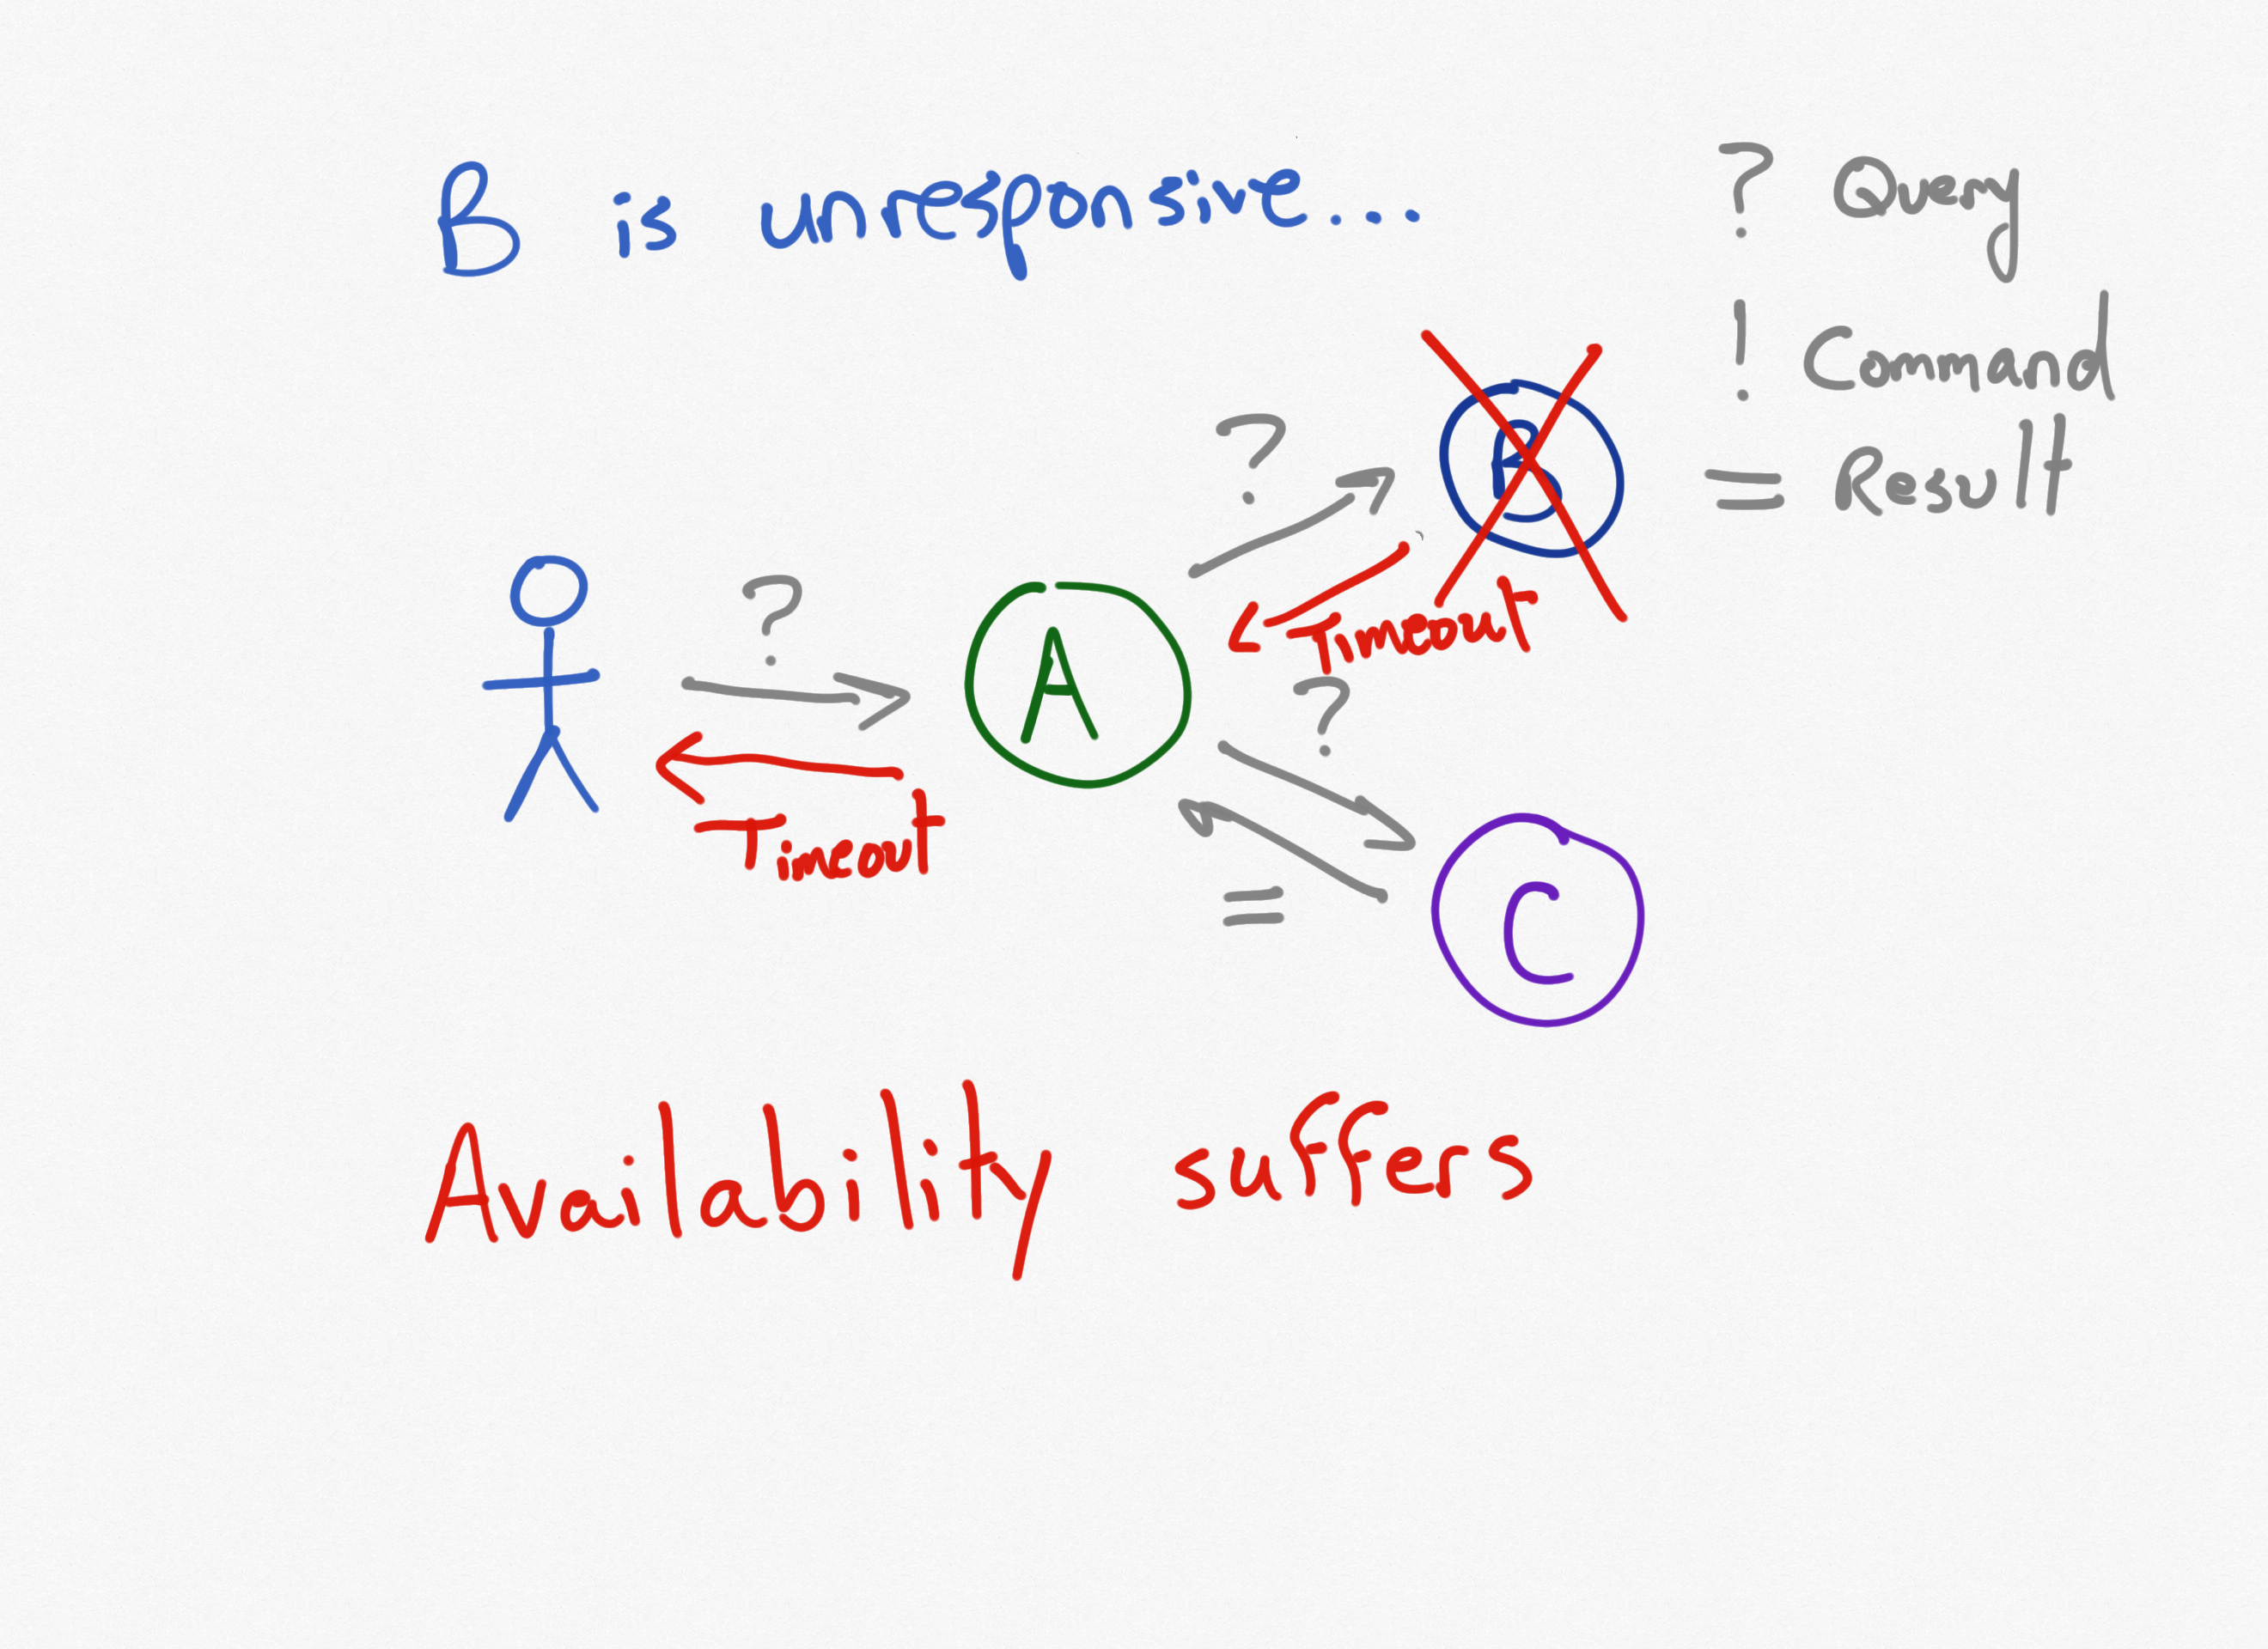 B is unresponsive...
? Query
! Command
= Result
?
B
Timeout
?
A
Timeout
?
=
C
Availability suffers